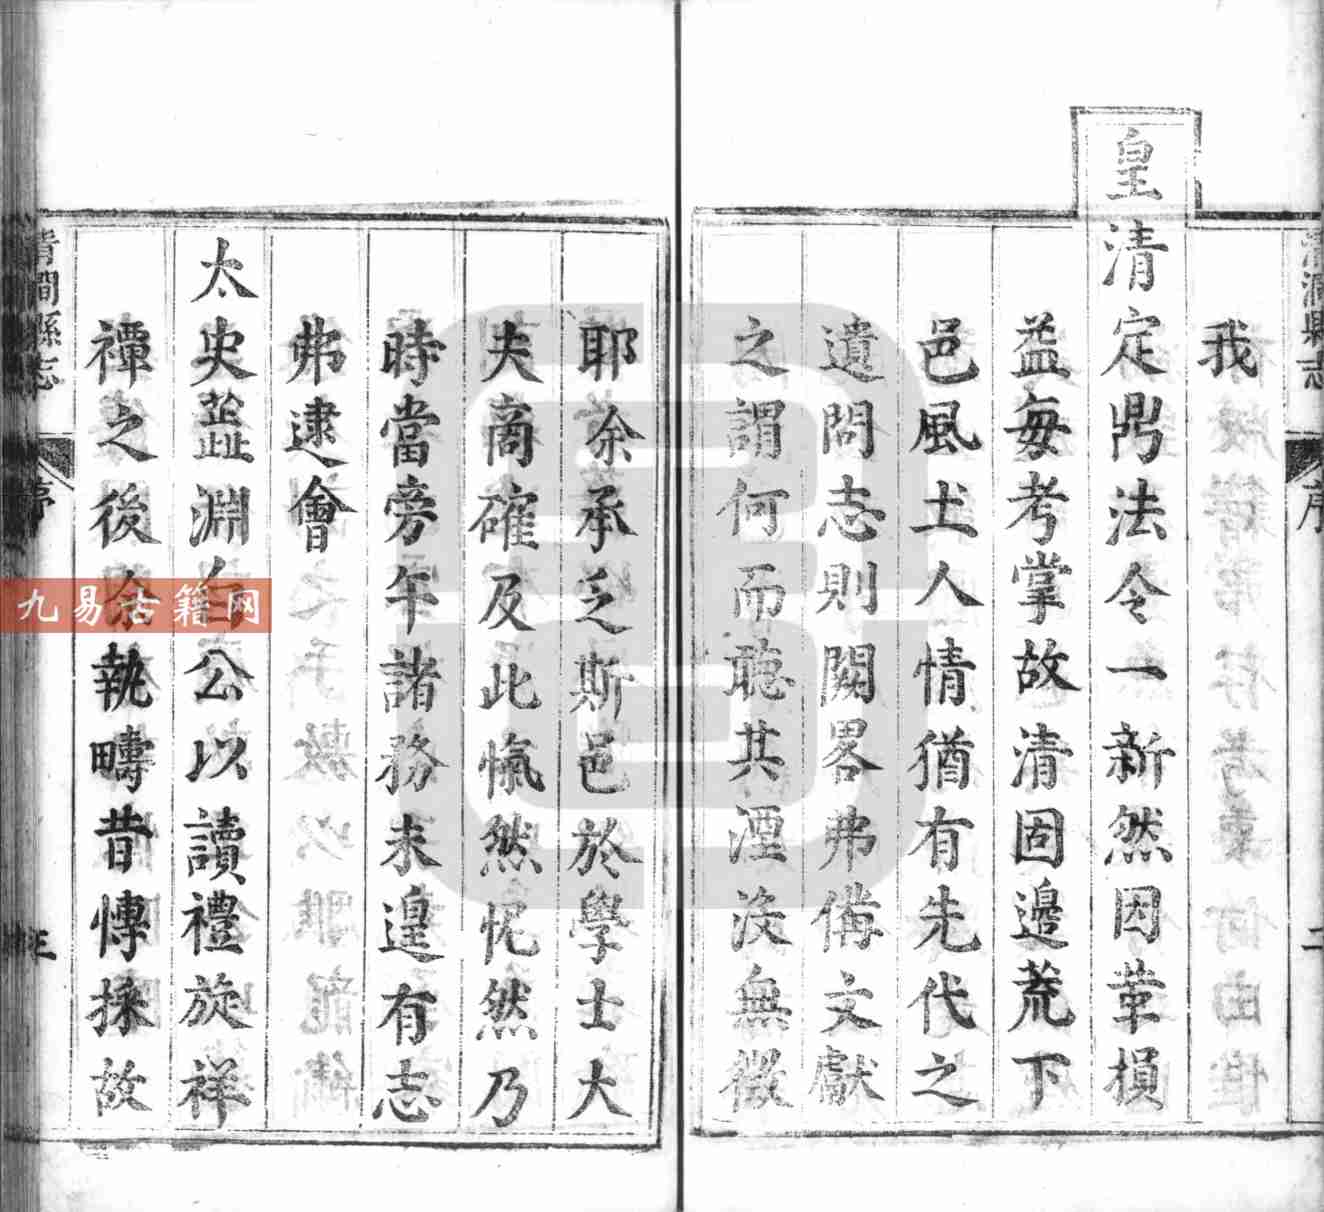 我
皇清定鼎法令一新然因革損
益每考掌故清固邉荒下
邑風土人情猶有先代之
遺問志則闕畧弗備文獻
之謂何而聽其湮沒無徵
耶余承乏斯邑於學士大
夫商確及此愾然然怩然乃
時當旁午諸務未遑有志
弗逮會
太史蕋淵白公以讀禮旋祥
禫之後余執疇昔慱採故
清澗縣志
序
二
清澗縣志
序
三
九易古籍网